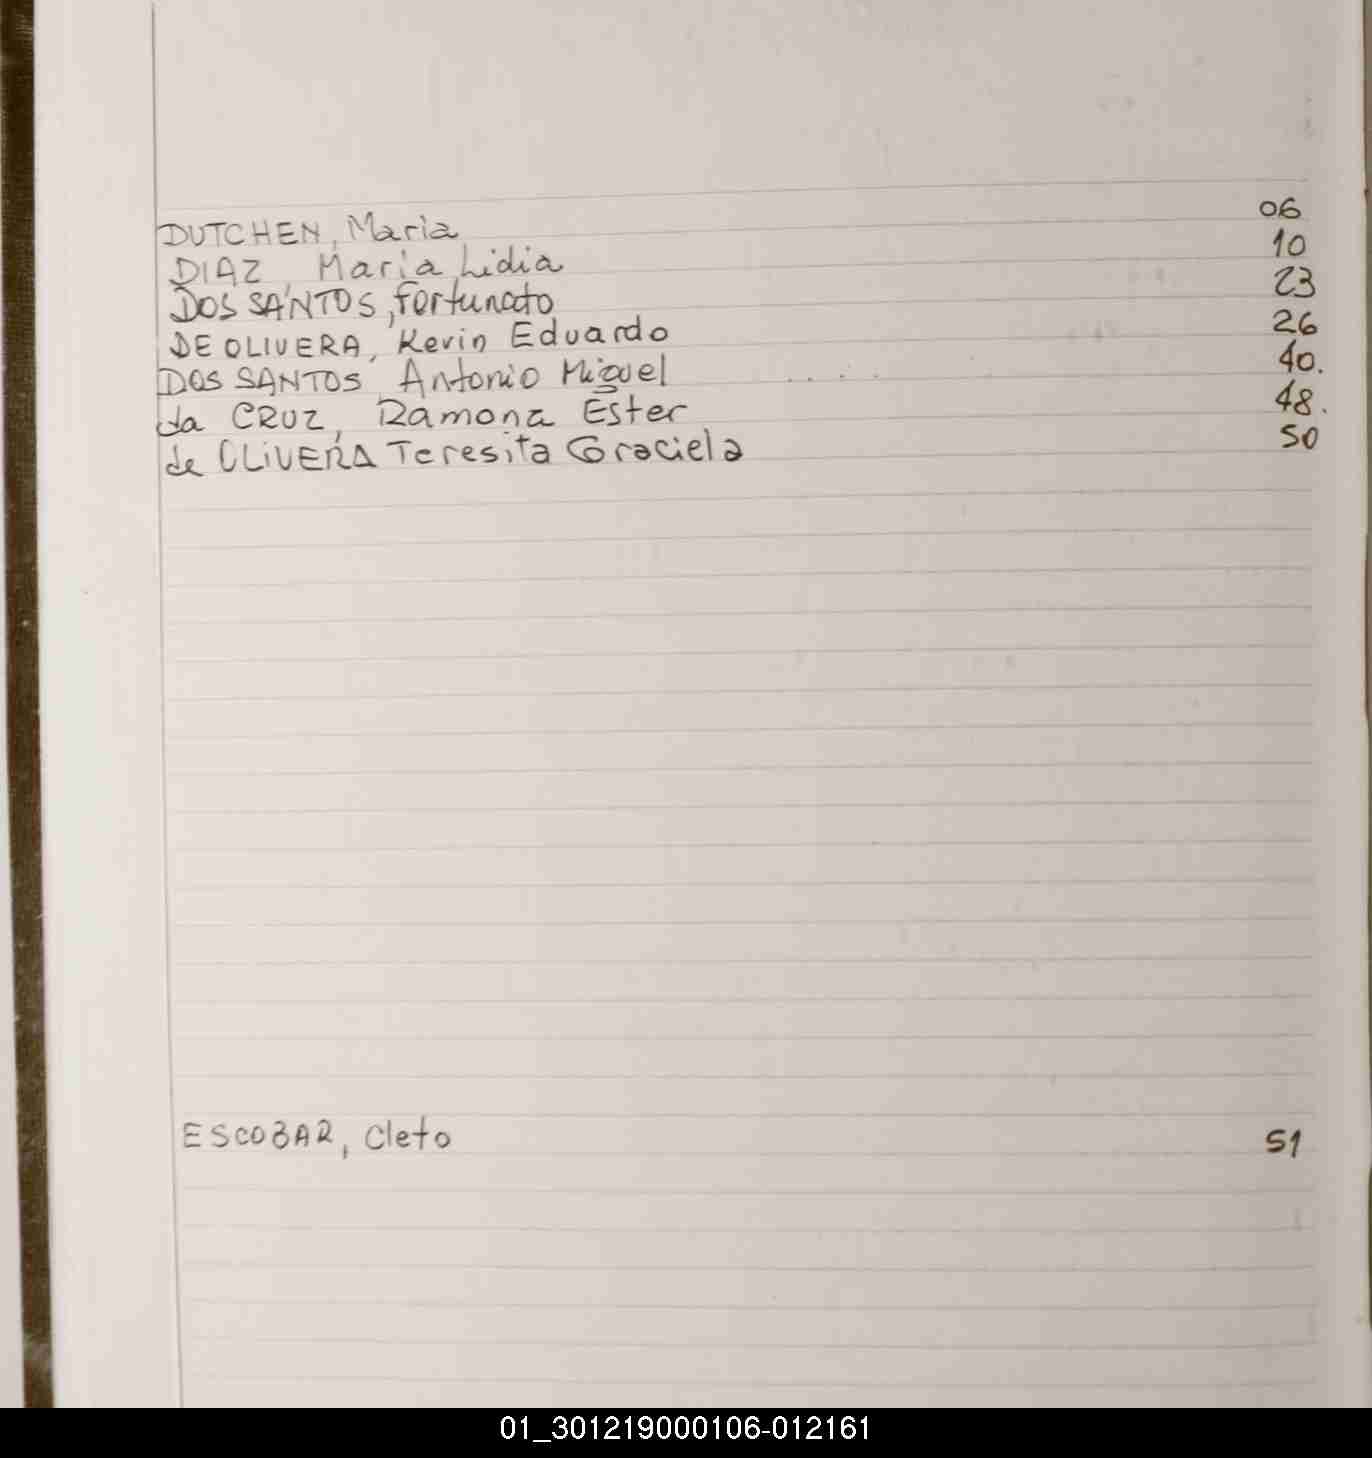 DUTCHEN, Maria 06
DIAZ, Maria Lidia 10
DOS SANTOS, Fortunato 23
DE OLIVERA, Kevin Eduardo 26
DOS SANTOS, Antonio Miguel .... 40.
da CRUZ, Ramona Ester 48.
de OLIVERA Teresita Graciela 50
ESCOBAR, Cleto 51
01_301219000106-012161